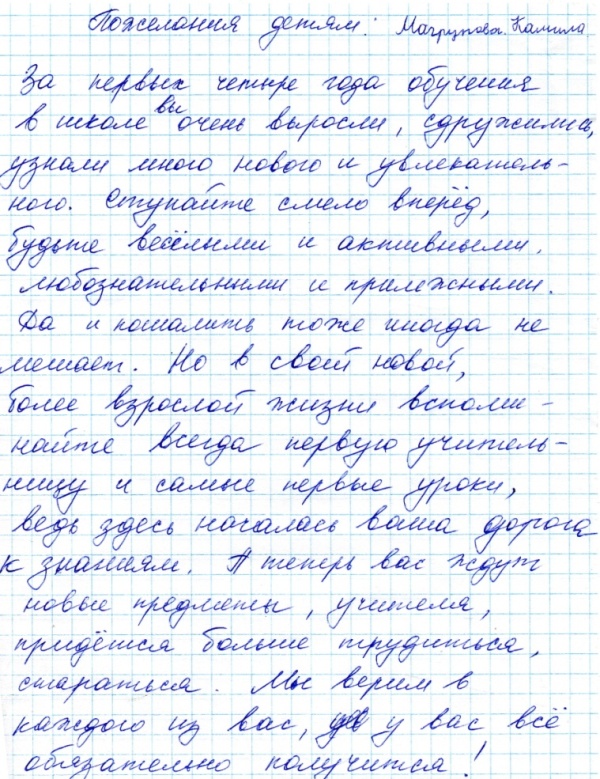 Пожелания детям: Магрупова. Камила
За первых четыре года обучения
в школе вы очень выросли, сдружились,
узнали много нового и увлекатель-
ного. Ступайте смело вперёд,
будьте весёлыми и активными,
любознательными и прилежными.
Да и пошалить тоже иногда не
мешает. Но в своей новой,
более взрослой жизни вспоми-
найте всегда первую учитель-
ницу и самые первые уроки,
ведь здесь началась ваша дорога
к знаниям. А теперь вас ждут
новые предметы, учителя,
придётся больше трудиться,
стараться. Мы верим в
каждого из вас, у вас всё
обязательно получится!